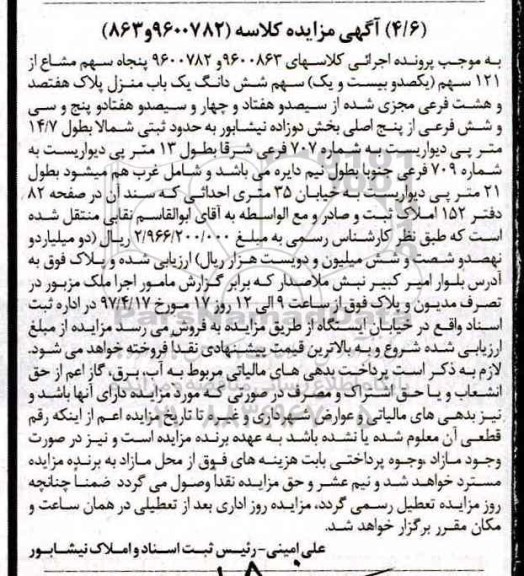 (۴/۶) آگهی مزایده کلاسه (۹۶۰۰۷۸۲و۸۶۳)
به موجب پرونده اجرائی کلاسهای ۹۶۰۰۸۶۳و ۹۶۰۰۷۸۲ پنجاه سهم مشاع از
۱۲۱ سهم (یکصدو بیست و یک) سهم شش دانگ یک باب منزل پلاک هفتصد
و هشت فرعی مجزی شده از سیصدو هفتاد و چهار و سیصدو هفتادو پنج و سی
و شش فرعی از پنج اصلی بخش دوزاده نیشابور به حدود ثبتی شمالا بطول ۱۴/۷
متر پی دیواریست به شماره ۷۰۷ فرعی شرقا بطول ۱۳ متر پی دیواریست به
شماره ۷۰۹ فرعی جنوبا بطول نیم دایره می باشد و شامل غرب هم میشود بطول
۲۱ متر پی دیواریست به خیابان ۳۵ متری احداثی که سند آن در صفحه ۸۲
دفتر ۱۵۲ املاک ثبت و صادر و مع الواسطه به آقای ابوالقاسم نقابی منتقل شده
است که طبق نظر کارشناس رسمی به مبلغ ۲/۹۶۶/۲۰۰/۰۰۰ ریال (دو میلیاردو
نهصدو شصت و شش میلیون و دویست هزار ریال) ارزیابی شده و پلاک فوق به
آدرس بلوار امیر کبیر نبش ملاصدار که برابر گزارش مامور اجرا ملک مزبور در
تصرف مدیون و پلاک فوق از ساعت ۹ الی ۱۲ روز ۱۷ مورخ ۹۷/۴/۱۷ در اداره ثبت
اسناد واقع در خیابان ایستگاه از طریق مزایده به فروش می رسد مزایده از مبلغ
ارزیابی شده شروع و به بالاترین قیمت پیشنهادی نقداً فروخته خواهد می شود.
لازم به ذکر است پرداخت بدهی های مالیاتی مربوط به آب، برق، گاز اعم از حق
انشعاب و یا حق اشتراک و مصرف در صورتی که مورد مزایده دارای آنها باشد و
نیز بدهی های مالیاتی و عوارض شهرداری و غیره تا تاریخ مزایده اعم از اینکه رقم
قطعی آن معلوم شده یا نشده باشد به عهده برنده مزایده است و نیز در صورت
وجود مازاد ،وجوه پرداختی بابت هزینه های فوق از محل مازاد به برنده مزایده
مسترد خواهد شد و نیم عشر و حق مزایده نقدا وصول می گردد ضمنا چنانچه
روز مزایده تعطیل رسمی گردد، مزایده روز اداری بعد از تعطیلی در همان ساعت و
مکان مقرر برگزار خواهد شد.
علی امینی- رئیس ثبت اسناد و املاک نیشابور